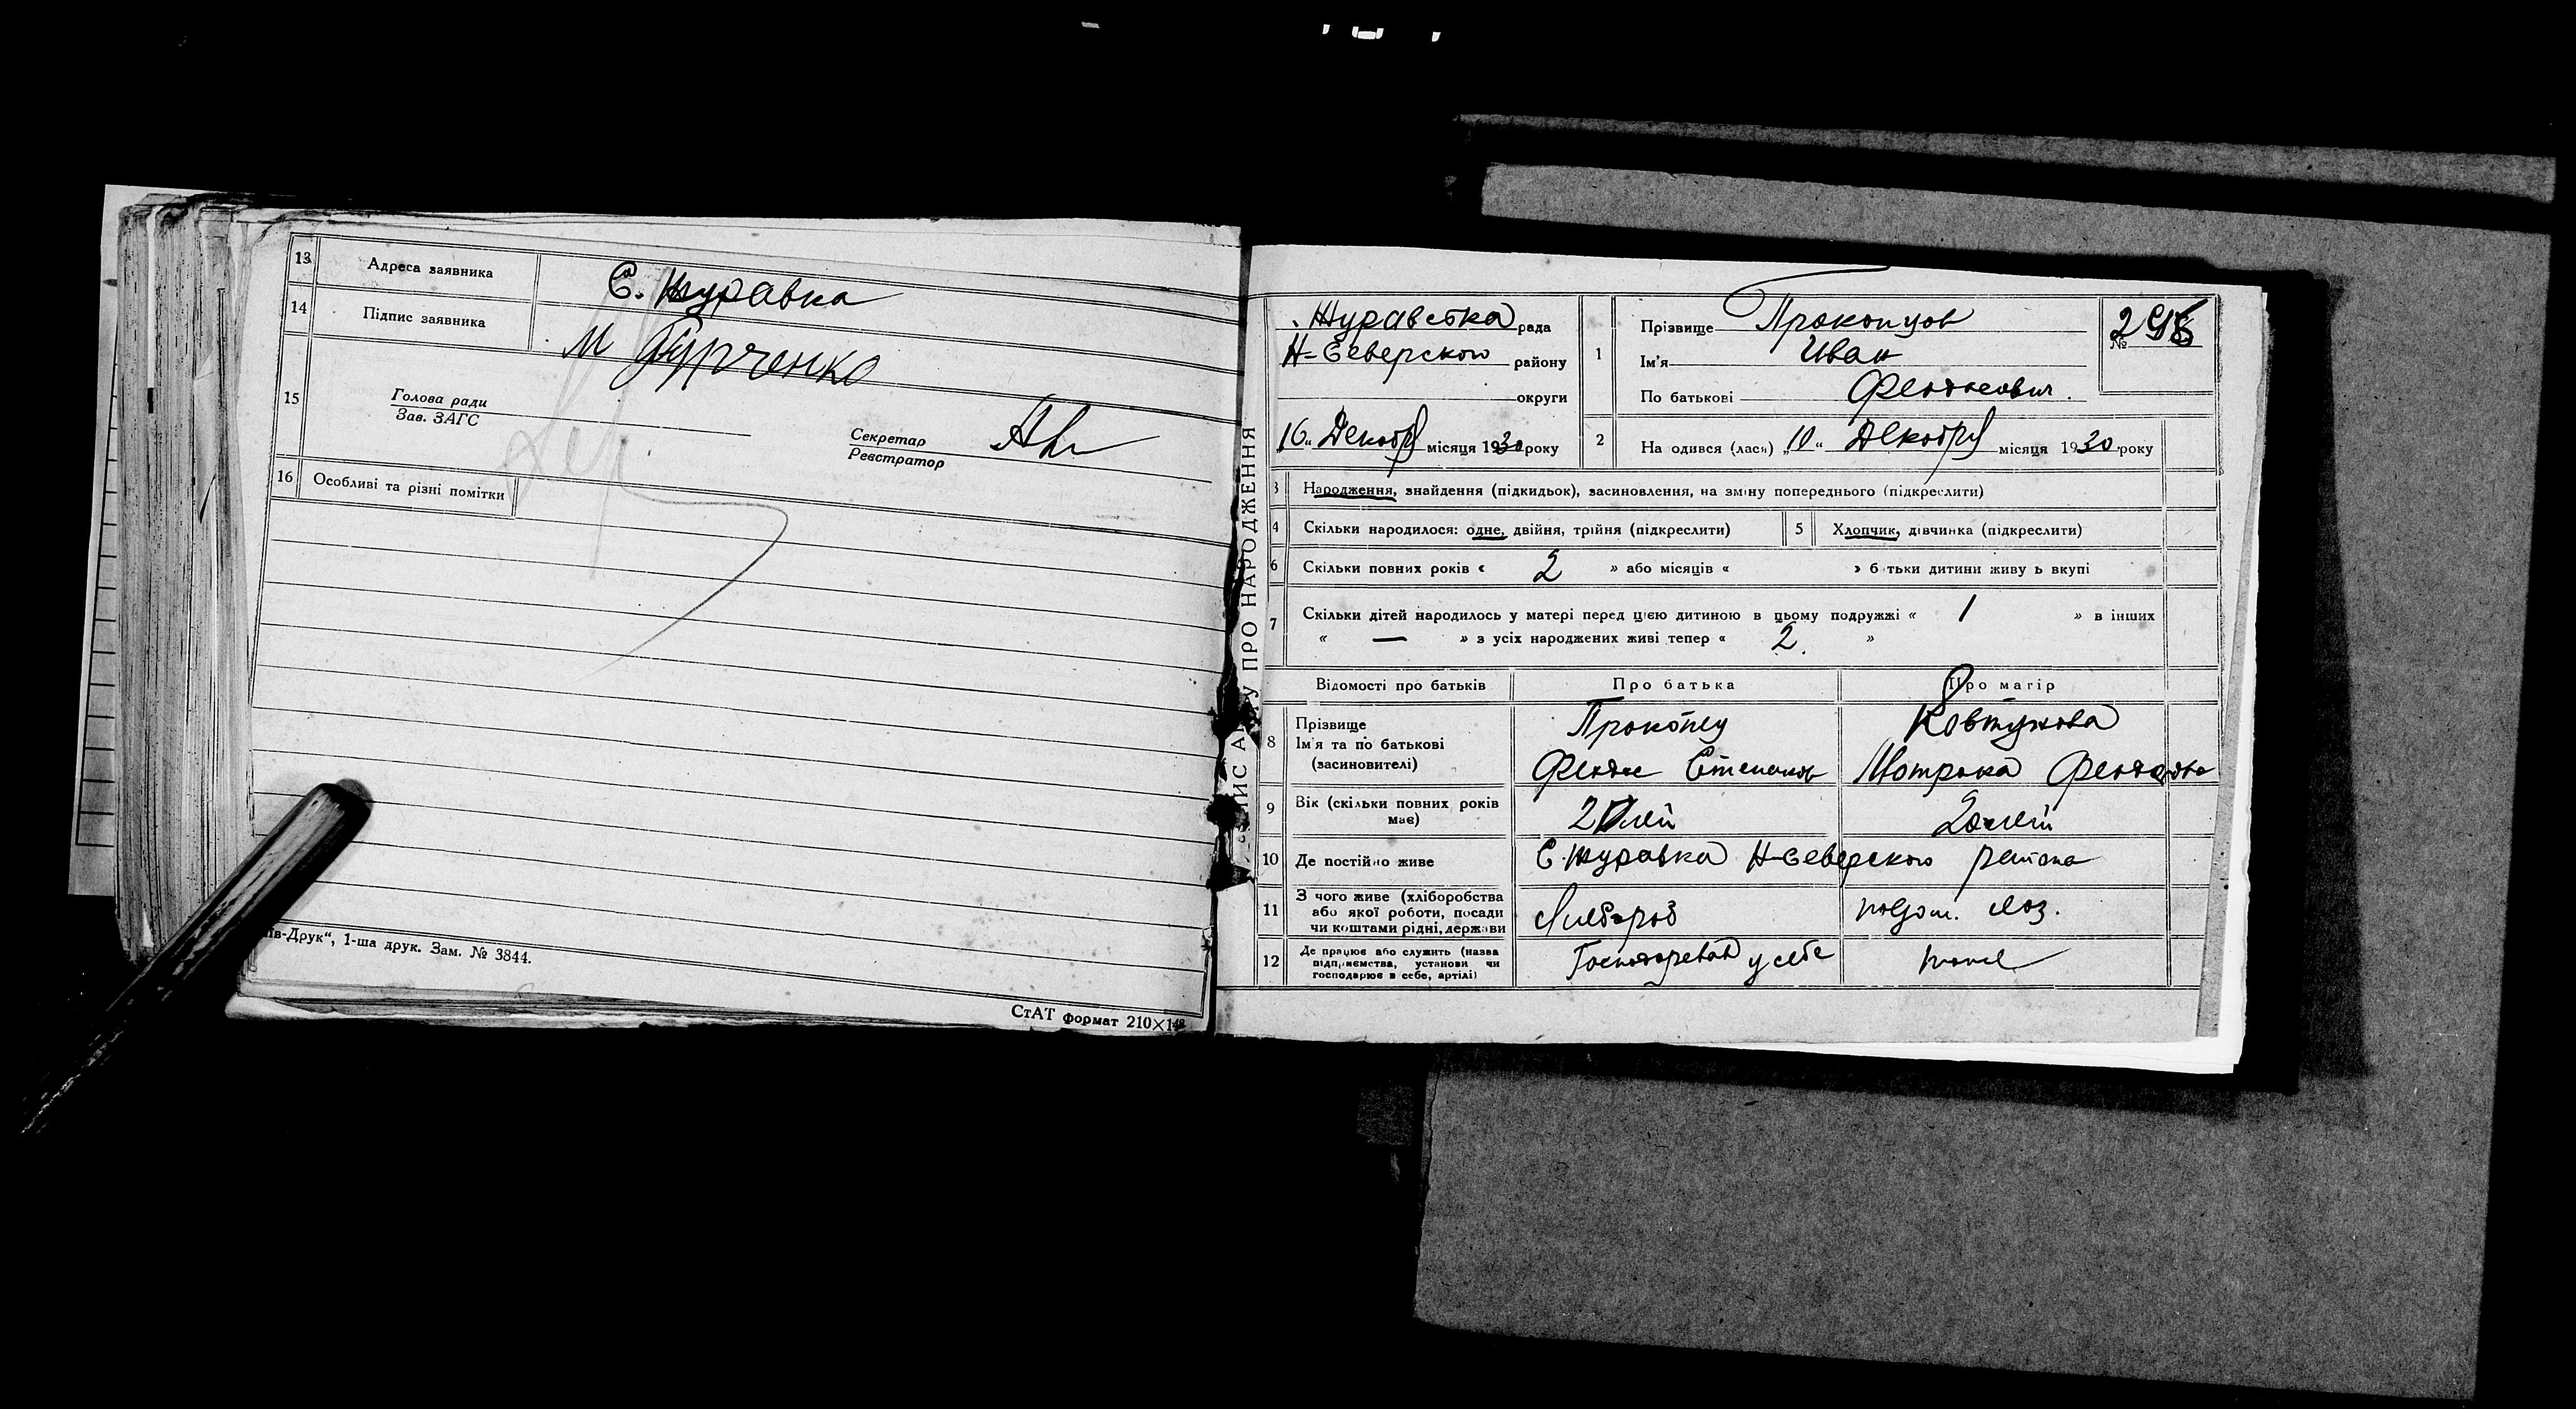 13 Адреса заявника С. Журавка
14 Підпис заявника М Гурченко
15 Голова ради
Зав. ЗАГС
Секретар
Реєстратор
16 Особливі та різні помітки
-Друк“, 1-ша друк. Зам. № 3844.
СтАТ формат 210×148
ПРО НАРОДЖЕННЯ
Журавская рада
Н-Северского району
округи
16 " Декабр місяця 1930 року
1 Прізвище Прокопцов
Ім'я Иван
По батькові
№ 298
2 На одився (лася) „10 " Декабр місяця 1930 року
3 Народження, знайдення (підкидьок), засиновлення, на зміну попереднього (підкреслити)
4 Скільки народилося: одне, двійня, трійня (підкреслити)
5 Хлопчик, дівчинка (підкреслити)
6 Скільки повних років « 2 » або місяців « » б тьки дитини живу ь вкупі
7 Скільки дітей народилось у матері перед цією дитиною в цьому подружжі « 1 » в інших
« — » з усіх народжених живі тепер « 2. »
Відомості про батьків Про батька Про матір
8 Прізвище
Ім'я та по батькові
(засиновителі)
Степанов
Ковтунова
9 Вік (скільки повних років
має)
лет
10 Де постійно живе С. Журавка Н-Северского района
11 З чого живе (хліборобства
або якої роботи, посади
чи коштами рідні, держави
12 Де працює або служить (назва
підприємства, установи чи
господарює в себе, артілі)
у себе